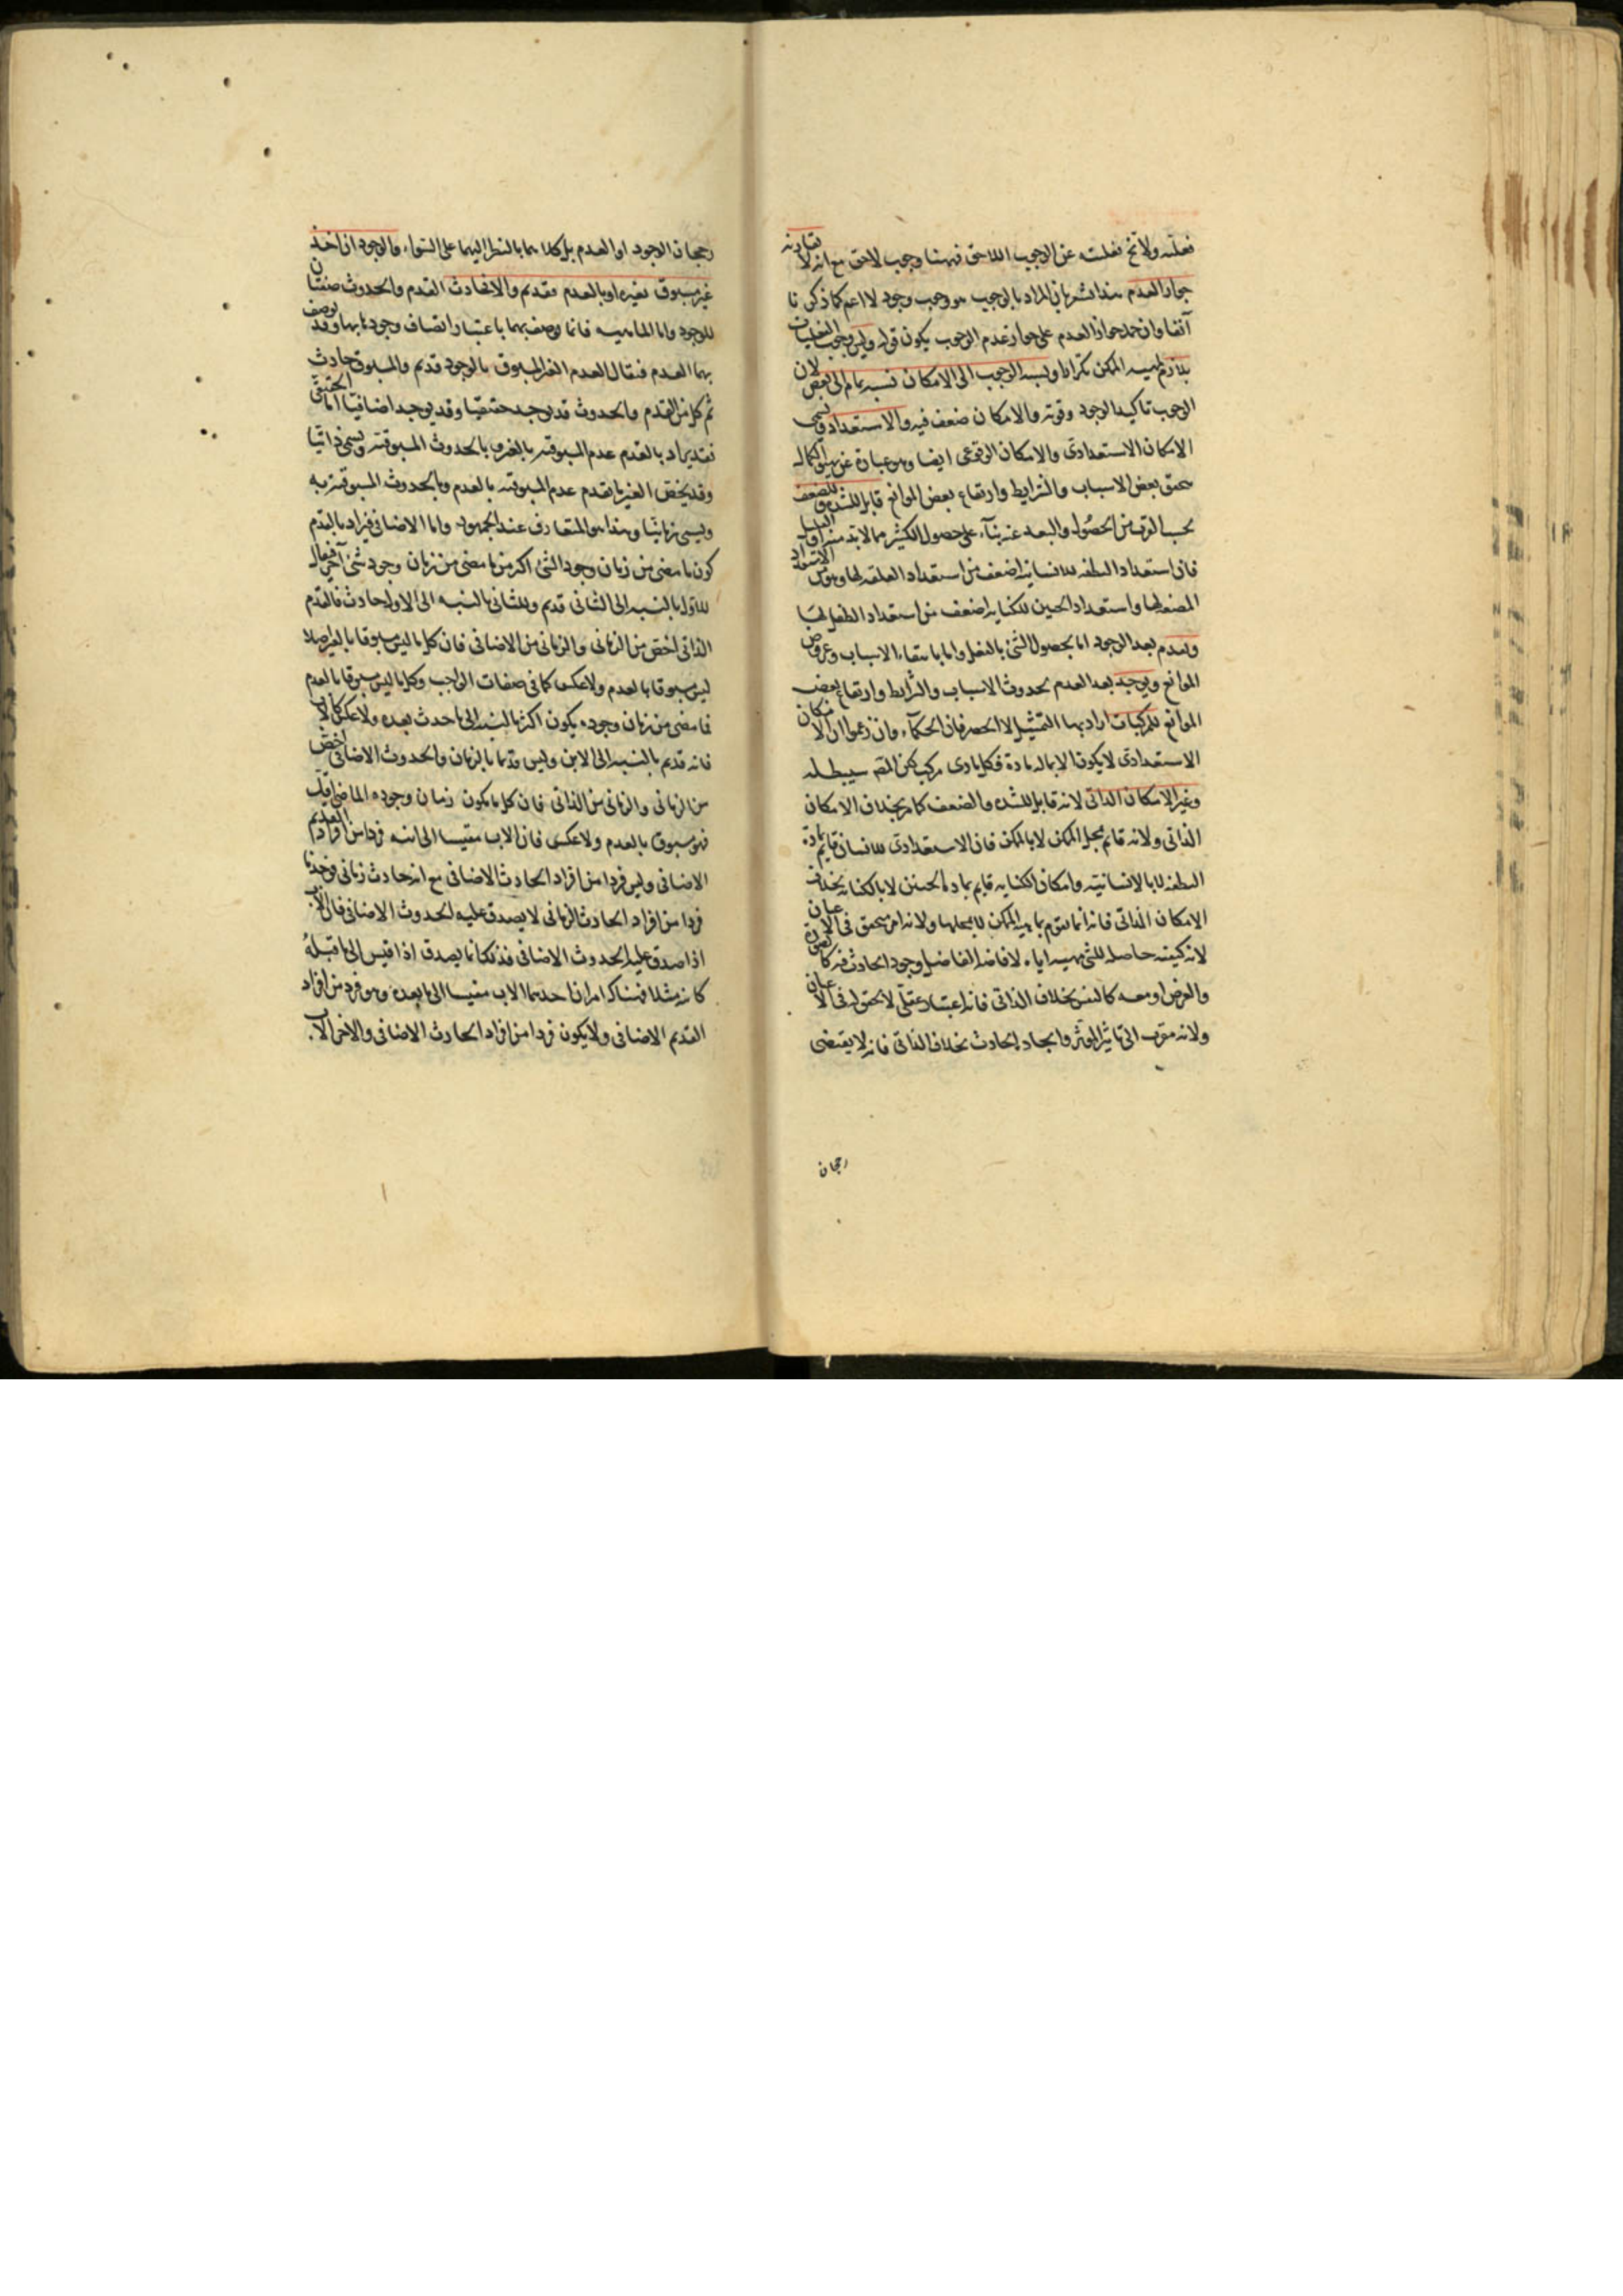 فعلته ولا تخ فعلته عن الوجوب اللاحق فههنا وجوب لاحق مع انه لا يقارنه
جواز العدم هذا يشعر بان المراد بالوجوب هو وجوب وجود لا اعم كما ذكرنا
آنفا وان حمل جواز العدم على جواز عدم الوجوب يكون قوله وليس وجوب الفعليات
بلازم لمهيه الممكن تكرارا ونسبه الوجوب الى الامكان نسبه تمام الى نقص لان
الوجوب تاكيد الوجود وقوته والامكان ضعف فيه والاستعداد ويسمى
الامكان الاستعدادى والامكان الوقوعى ايضا وهو عبارة عن تهيؤ الكمال
بتحقق بعض الاسباب والشرايط وارتفاع بعض الموانع قابل للشده والضعف
بحسب القرب من الحصول والبعد عنه بناء على حصول الكثير مما لا بد منه او القليل
فان استعداد النطفه للانسانيه اضعف من استعداد العلقه لها وهو من الاستعداد
المضغه لها واستعداد الجنين للكتابه اضعف من استعداد الطفل لها
ويعدم بعد الوجود اما بحصول الشئ بالفعل واما بانتفاء الاسباب وعروض
الموانع ويوجد بعد العدم بحدوث الاسباب والشرايط وارتفاع بعض
الموانع للمركبات اراد بها التمثيل لا الحصر فان الحكماء وان زعموا ان الامكان
الاستعدادى لا يكون الا لما له مادة فكل مادى مركب لكن المص سيبطله
وغير الامكان الذاتى لانه قابل للشده والضعف كما مر بخلاف الامكان
الذاتى ولانه قائم بمحل الممكن لا بالممكن فان الاستعدادى للانسان قايم بمادة
النطفه لا بالانسانيه وامكان الكتابه قايم بمادة الجنين لا بالكتابه بخلاف
الامكان الذاتى فانه انما يقوم بماهيه الممكن لا بمحلها ولانه امر متحقق فى الاعيان
لانه كيفيه حاصله للشئ مهيئه اياه لافاضه الفاضل وجود الحادث فيه كالصورة
والعرض او معه كالنفس بخلاف الذاتى فانه اعتبار عقلى لا تحقق له فى الاعيان
ولانه مقرب الى تاثير المؤثر وايجاد الحادث بخلاف الذاتى فانه لا يقتضى
رجحان
رجحان الوجود او العدم بل كلاهما بالنظر اليهما على السواء والوجود ان اخذ
غير مسبوق بغيره او بالعدم فقديم والا فحادث القدم والحدوث صفتان
للوجود واما الماهيه فانما يوصف بهما باعتبار اتصاف وجودها بهما وقد يوصف
بهما العدم فيقال العدم الغير المسبوق بالوجود قديم والمسبوق حادث
ثم كل من القدم والحدوث قد يوجد حقيقيا وقد يوجد اضافيا اما الحقيقى
فقد يراد بالقدم عدم المسبوقيه بالغير وبالحدوث المسبوقيه ويسمى ذاتيا
وقد يخص الغير بالعدم فالقدم عدم المسبوقيه بالعدم والحدوث المسبوقيه به
ويسمى زمانيا وهذا هو المتعارف عند الجمهور واما الاضافى فيراد بالقدم
كون ما مضى من زمان وجود الشئ اكثر من ما مضى من زمان وجود شئ آخر فيقال
للاول بالنسبه الى الثانى قديم وللثانى بالنسبه الى الاول حادث فالقدم
الذاتى اخص من الزمانى والزمانى من الاضافى فان كل ما ليس مسبوقا بالغير اصلا
ليس مسبوقا بالعدم ولا عكس كما فى صفات الواجب وكل ما ليس مسبوقا بالعدم
فما مضى من زمان وجوده يكون اكثر بالنسبه الى ما حدث بعده ولا عكس كالاب
فانه قديم بالنسبه الى الابن وليس قديما بالزمان والحدوث الاضافى اخص
من الزمانى والزمانى من الذاتى فان كل ما يكون زمان وجوده الماضى اقل
فهو مسبوق بالعدم ولا عكس فان الاب مقيسا الى ابنه فرد من افراد القديم
الاضافى وليس فردا من افراد الحادث الاضافى مع انه حادث زمانى فوجدنا
فردا من افراد الحادث الزمانى لا يصدق عليه الحدوث الاضافى فان الاب
اذا صدق عليه الحدوث الاضافى فذلك انما يصدق اذا قيس الى ما قبله
كابيه مثلا فهناك امران احدهما الاب مقيسا الى ما بعده وهو فرد من افراد
القديم الاضافى ولا يكون فردا من افراد الحادث الاضافى والاخر الاب